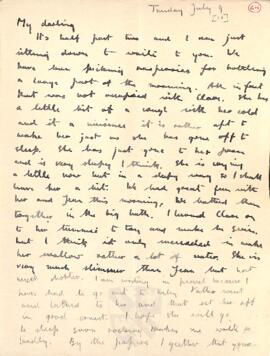 Tuesday July 9
My darling
It's half past two and I am just
sitting down to write to you. We
have been picking raspberries for bottling
a large part of the morning. All in fact
that was not occupied with Clare. She has
a little bit of a cough with her cold
and it a nuisance it is rather apt to
wake her just as she has gone off to
sleep. She has just gone to her pram
and is very sleepy I think. She is crying
a little now but in a sleepy way so I shall
leave her a bit. We had great fun with
her and Jean this morning. We bathed them
together in the big bath. I wound Clare on
to her tummy to try and make her swim
but I think it only succeeded in make
her swallow rather a lot of water. She is
very much slimmer than Jean but
I am writing in pencil because I
never had to go and
and talked to her and that set her off
in good . I hope she will go
to sleep soon makes me walk so
badly. By the papers I gather that